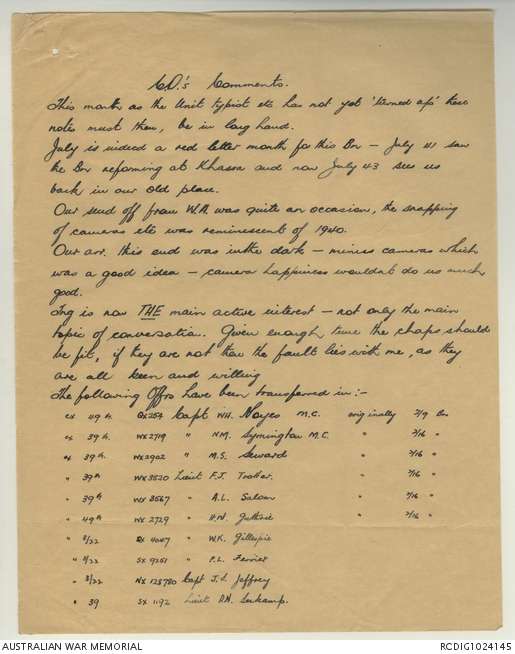 C.O.'s Comments.
This month as the Unit typist etc has not yet 'turned up' these
notes must then, be in long hand.
July is indeed a red letter month for this Bn – July 41 saw
the Bn reforming at Khassa and now July 43 sees us
back in our old place.
Our send off from W.A. was quite an occasion, the snapping
of cameras etc was reminescent of 1940.
Our arr. this end was in the dark – minus cameras which
was a good idea – camera happiness wouldnt do us much
good.
Trg is now THE main active interest – not only the main
topic of conversation. Given enough time the chaps should
be fit, if they are not then the fault lies with me, as they
are all keen and willing
The following Offrs have been transferred in :-
ex 49 th. QX254 Capt WH. Noyes M.C. originally 2/9 Bn
ex 39 th. WX2719 " N.M. Symington M.C. " 2/16 "
ex 39 th. WX2902 " M.S. Seward " 2/16 "
" 39 th WX3520 Lieut F.J. Trotter. " 2/16 "
" 39 th WX 3567 " A.L. " 2/16 "
" 49 th WX 2729 " Guthrie " 2/16 "
" 3/22 SX 4047 " W.K. Gillespie
" 3/22 SX 9251 " P.L. Ferrier
" 3/22 NX 128780 Capt J.S. Jaffrey
" 39 SX 1192 Lieut
AUSTRALIAN WAR MEMORIAL
RCDIG1024145